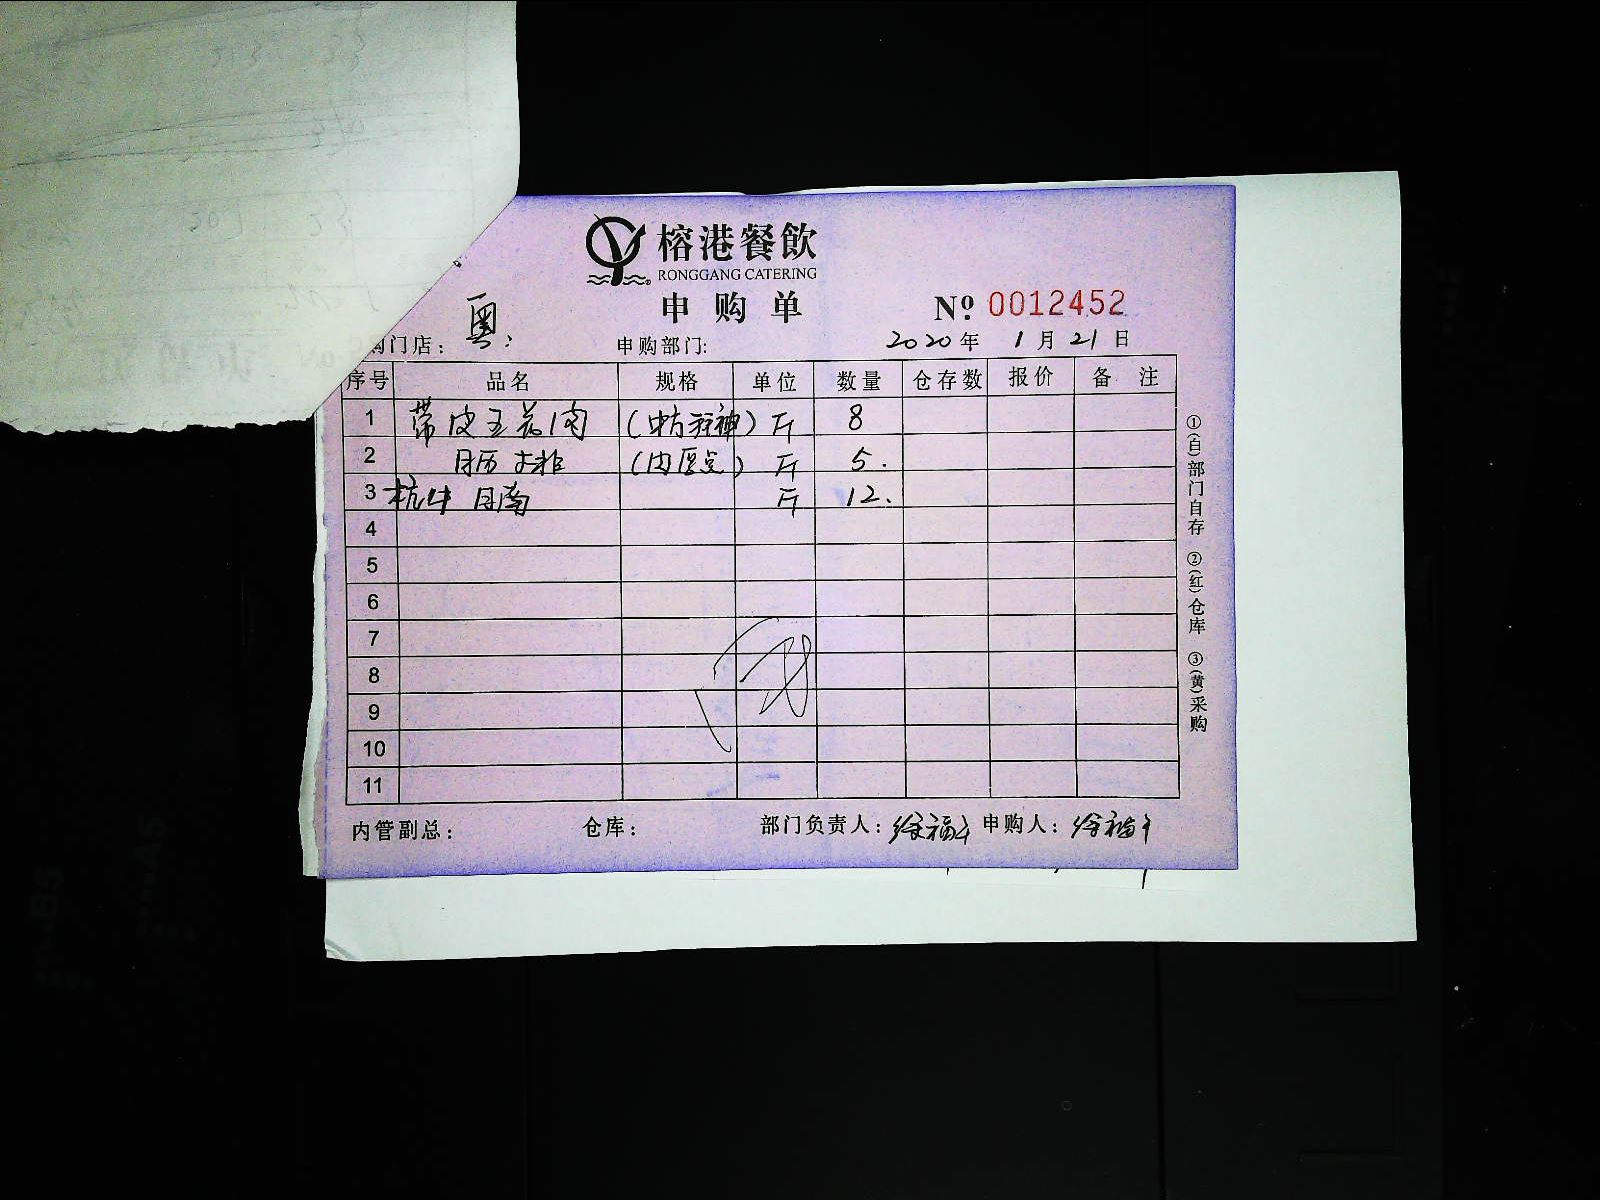 榕港餐飲
RONGGANG CATERING
申购单
№ 0012452
购门店： 粤：
申购部门:
2020年 1月21日
序号 品名 规格 单位 数量 仓存数 报价 备注
1 带皮五花肉 斤 8
2 (肉厚点) 斤 5.
3 杭牛 斤 12.
4
5
6
7
8
9
10
11
内管副总： 仓库： 部门负责人：徐福 申购人：徐福
①(自)部门自存 ②(红)仓库 ③(黄)采购